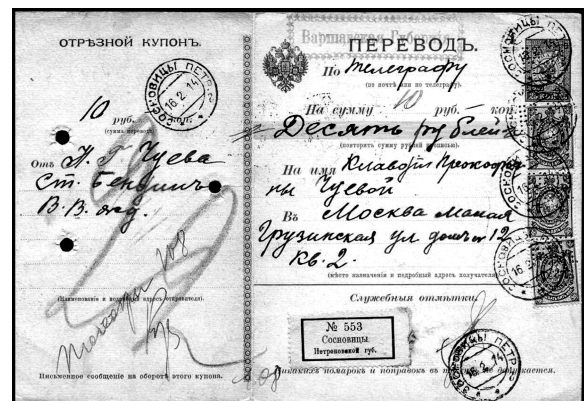 ОТРѢЗНОЙ КУПОНЪ.
СОСНОВИЦЫ ПЕТР. Г.
16.2.14
10
руб. коп.
(сумма перевода).
Отъ П. Г. Чуева
Ст. Бендинъ
В. В. жд.
(Наименованіе и подробный адресъ отправителя).
Письменное сообщеніе на оборотѣ этого купона.
Варшавская Губернія
ПЕРЕВОДЪ.
По телеграфу
(по почтѣ или по телеграфу).
На сумму 10 руб. коп.
Десять рублей
(повторить сумму рублей прописью).
На имя Клавдіи Прокофь
ны Чуевой
Въ Москва Малая
Грузинская ул домъ № 12
кв. 2.
(мѣсто назначенія и подробный адресъ получателя)
Служебныя отмѣтки.
№ 553
Сосновицы
Петроковской губ.
СОСНОВИЦЫ ПЕТР. Г.
16.2.14
Никакихъ помарокъ и поправокъ въ не допускается.